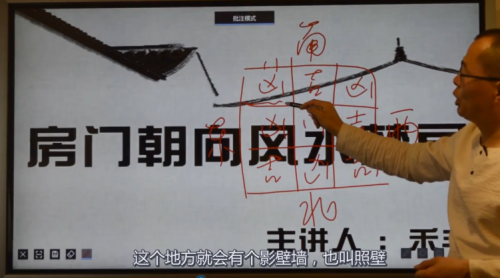 批注模式
南
凶 吉 凶
东 凶 吉 西
吉 凶 吉
北
房门朝向风水
主讲人：禾
这个地方就会有个影壁墙，也叫照壁